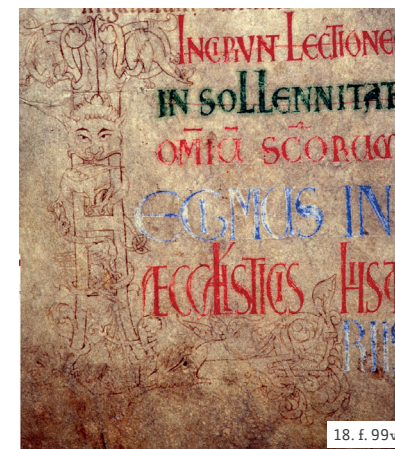 INCIPVNT LECTIONE
IN SOLLENNITAT
OM̄IŪ SC̄ORUM
LEGIMUS IN
ÆCCLISTICIS HISTO
RIIS
18. f. 99v